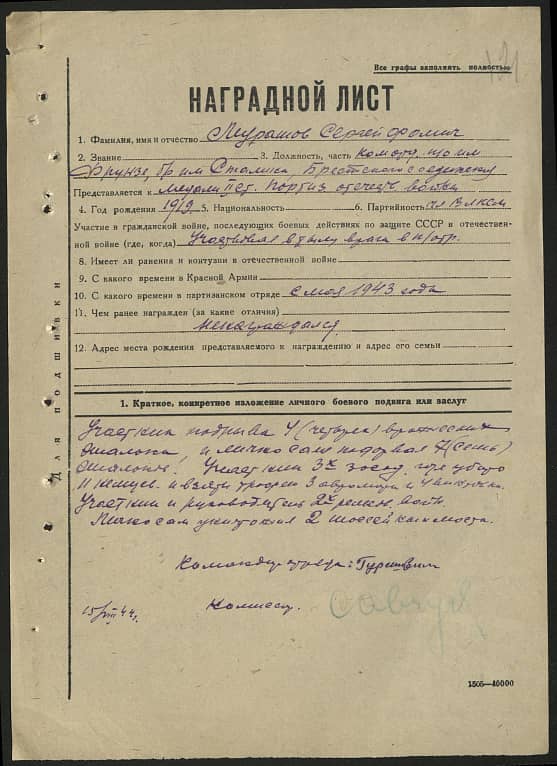 Все графы заполнять полностью
НАГРАДНОЙ ЛИСТ
1. Фамилия, имя и отчество Мурашов Сергей Фомич
2. Звание 3. Должность, часть
Фрунзе, бр им Сталина, Брестского соединения
Представляется к Медали II ст. Партиз отечеств войны
4. Год рождения 1919 5. Национальность 6. Партийность чл ВЛКСМ
Участие в гражданской войне, последующих боевых действиях по защите СССР и отечествен-
ной войне (где, когда) Участвовал в тылу врага в п/отр.
8. Имеет ли ранения и контузии в отечественной войне
9. С какого времени в Красной Армии
10. С какого времени в партизанском отряде с мая 1943 года
11. Чем ранее награжден (за какие отличия)
не награждался
12. Адрес места рождения представляемого к награждению и адрес его семьи
Для подшивки
1. Краткое, конкретное изложение личного боевого подвига или заслуг
Участник подрыва 4 (четырех) вражеских
эшалона, и лично сам подорвал 7 (семь)
эшалонов. Участник 3х засад, где убито
11 немцев и взяты трофеи 3 автомата и 4 винтовки.
Участник и руководитель 2х рельс. войн.
Лично сам уничтожил 2 шоссейных моста.
Командир отряда:
Комиссар
15/VIII 44г.
1505—40000